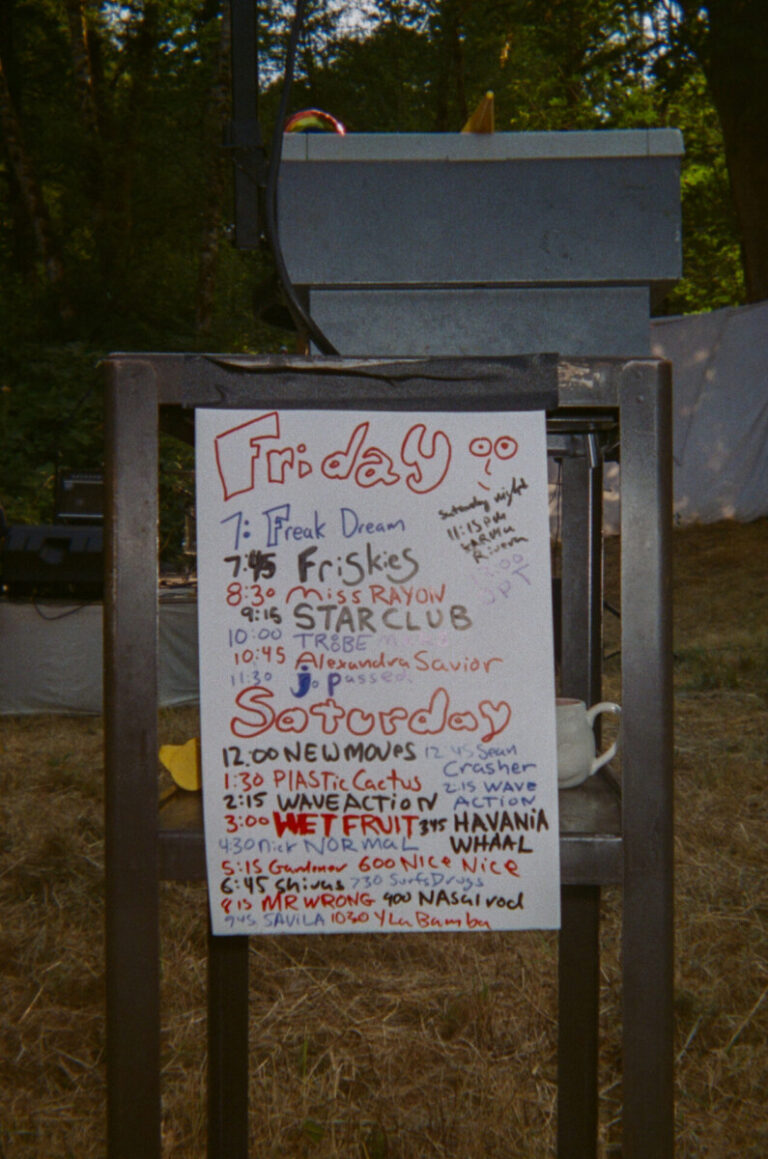 Friday
Saturday night
11:15 PM
KARMA
Rivera
7: Freak Dream
7:45 Friskies
8:30 Miss RAYON
9:15 STAR CLUB
10:00 TRIBE
10:45 Alexandra Savior
11:30 j. passed.
Saturday
12:00 NEW MOVES 12 45 Sean
Crasher
1:30 PLASTIC Cactus
2:15 WAVE ACTION 2:15 WAVE
ACTION
3:00 WET FRUIT 345 HAVANIA
WHAAL
4:30 nick NORMAL
5:15 Gardener 600 NICE NICE
6:45 Shivas 730 Surfs Drugs
8 15 MR WRONG 900 NASalrod
945 SAVILA 1030 Y La Bamba